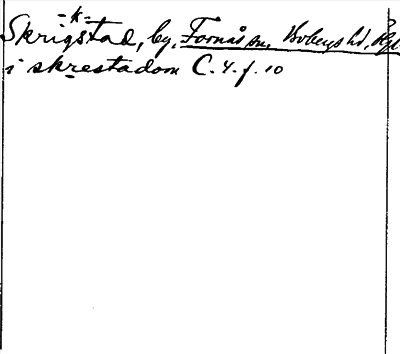 -k-
Skrigstad, by, Fornås sn, Bobergs hd, Ögl.
i skrestadom C. 4. f. 10